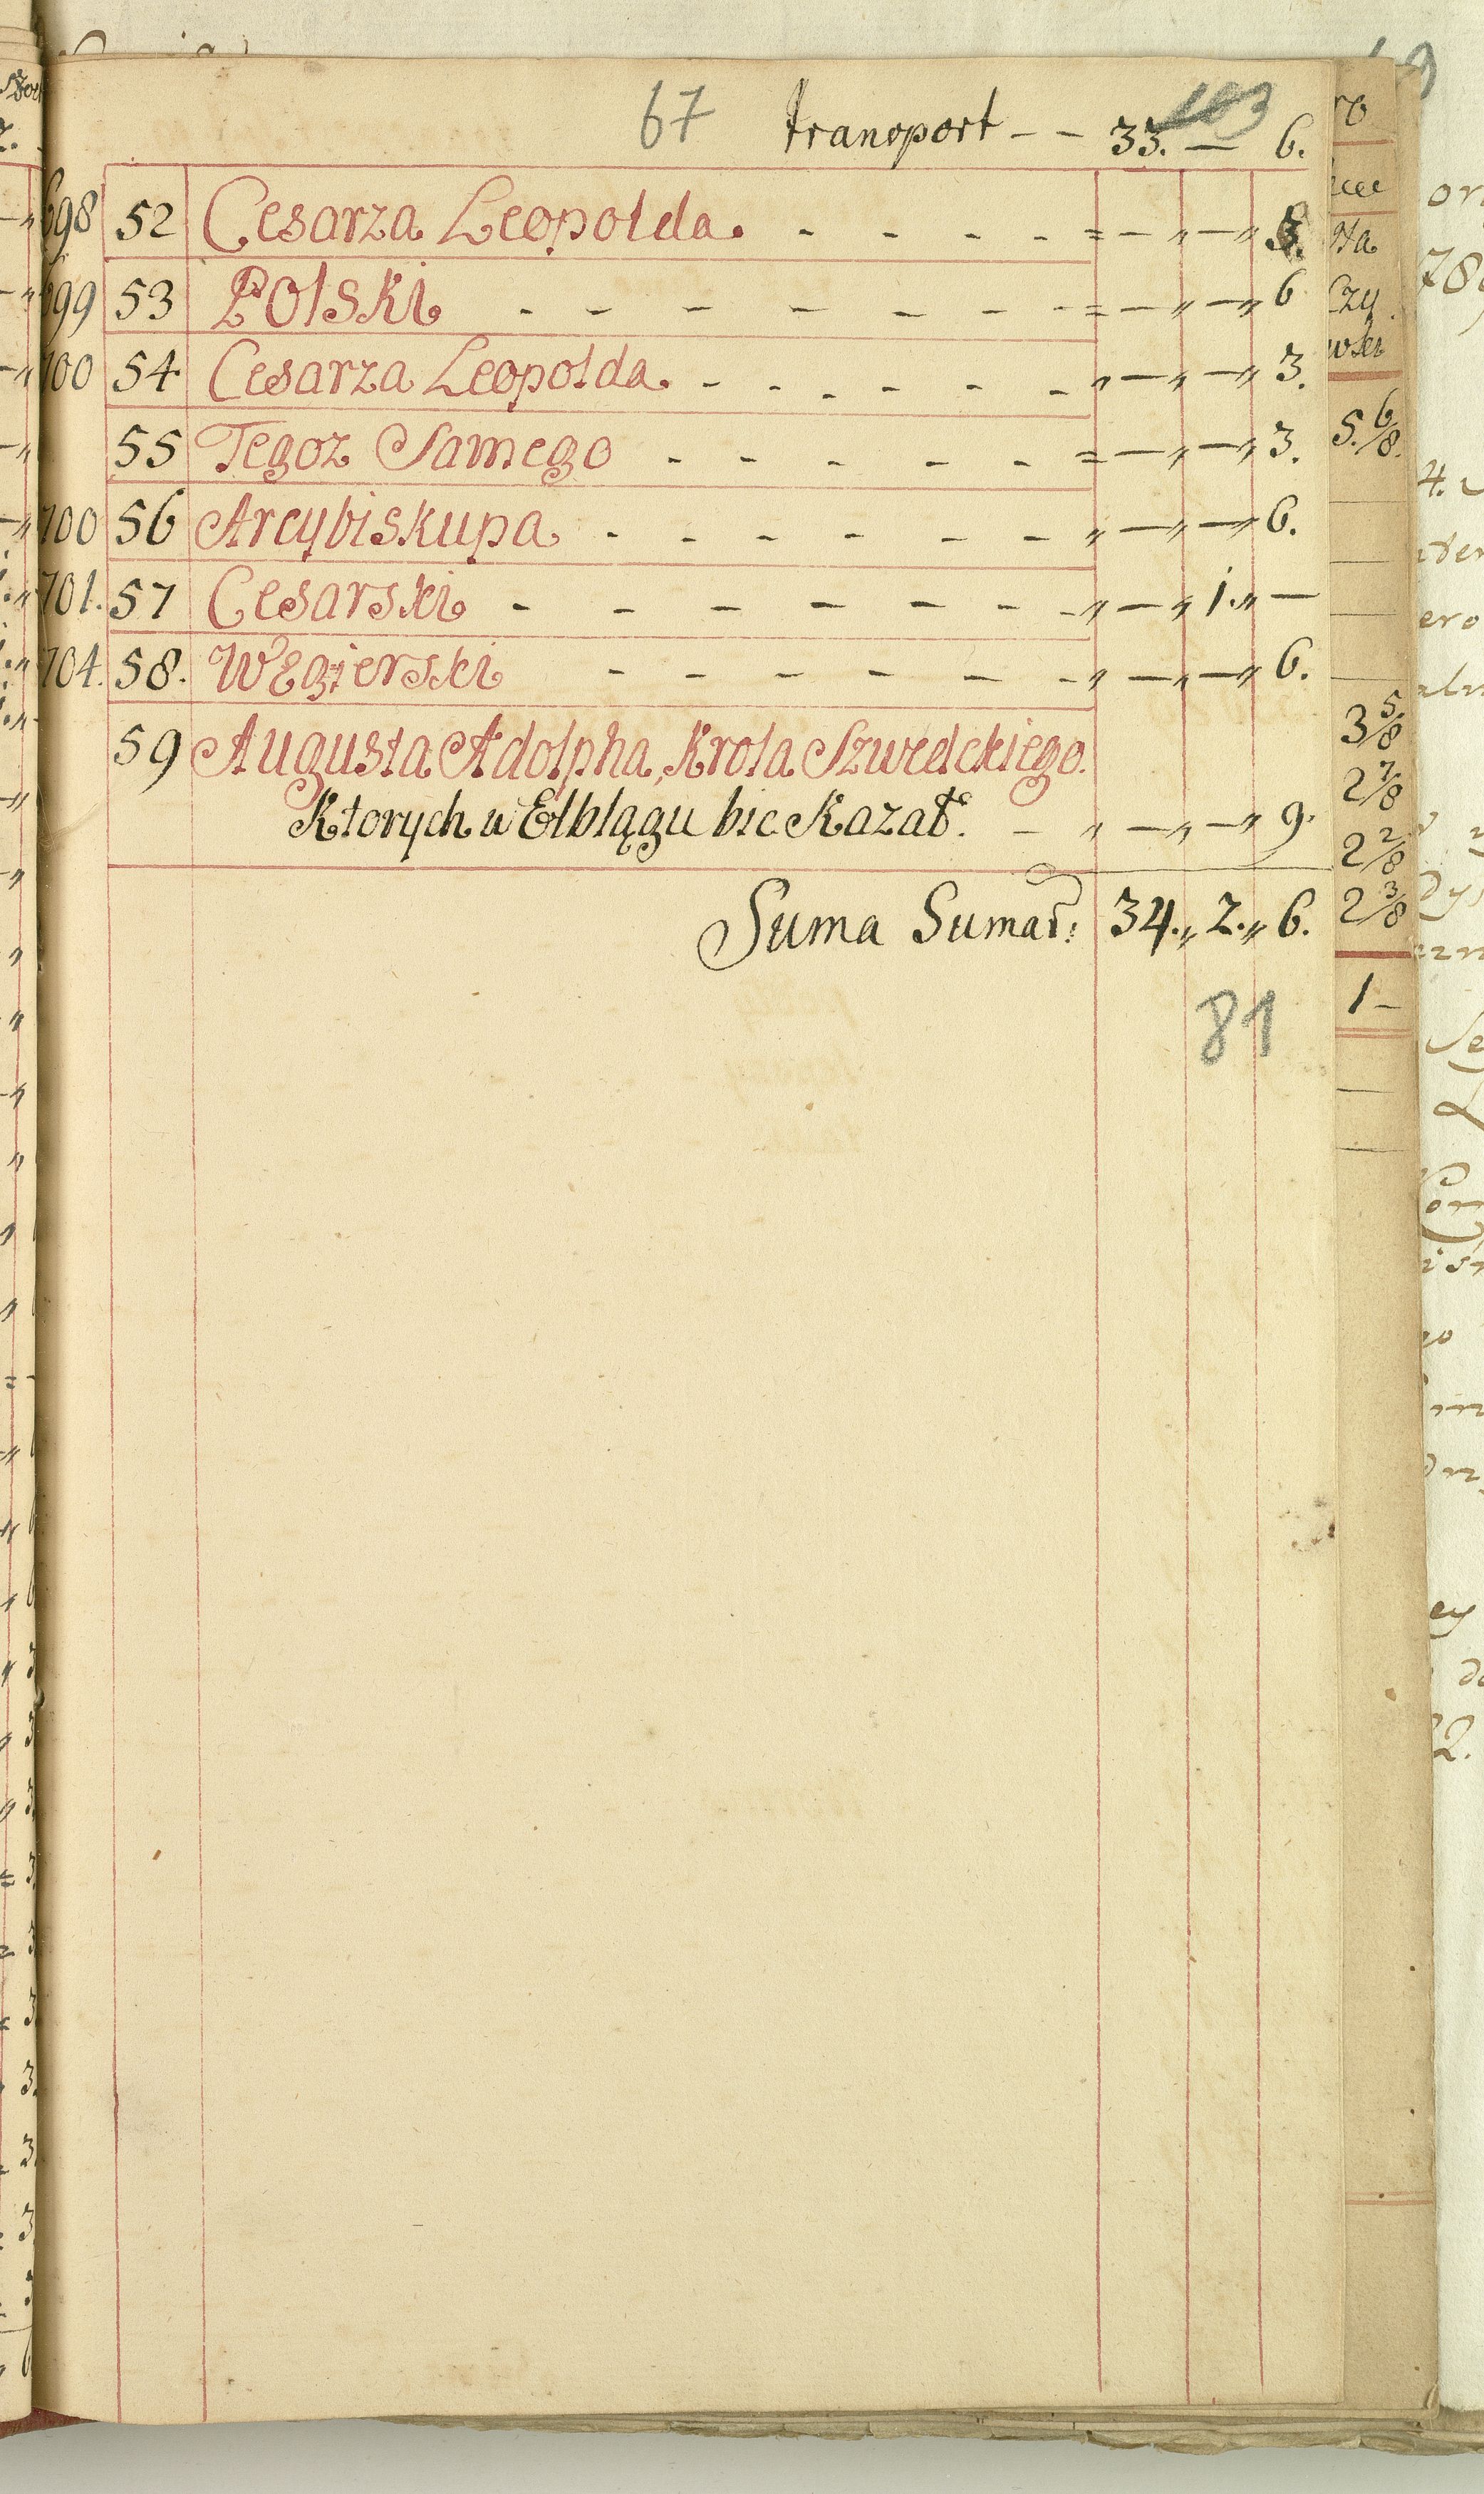 67 transport - - 33. — 6.
103
698 52 Cesarza Leopolda. - - - - = — „ — „ 3.
699 53 Polski - - - - - - - = — „ — „ 6
700 54 Cesarza Leopolda. - - - - - „ — „ — „ 3.
55 Tegoz Samego - - - - - = — „ — „ 3.
700 56 Arcybiskupa - - - - - - „ — „ — „ 6.
701. 57 Cesarski - - - - - - - „ — „ 1. „ —
704. 58. Węgierski - - - - - - „ — „ — „ 6.
59 Augusta Adolpha, Krola Szwedckiego.
Ktorych w Elblągu bic Kazał. — „ — „ — „ 9.
Suma Sumar: 34. „ 2. „ 6.
81
5. 6/8.
3 5/8
2 7/8
2 2/8
2 3/8
1 -